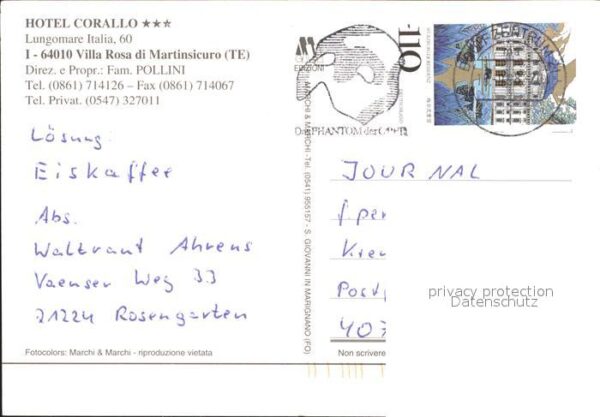 HOTEL CORALLO ★★★
Lungomare Italia, 60
I - 64010 Villa Rosa di Martinsicuro (TE)
Direz. e Propr.: Fam. POLLINI
Tel. (0861) 714126 – Fax (0861) 714067
Tel. Privat. (0547) 327011
Lösung:
Eiskaffee
Abs.
Waltraut Ahrens
Vaenser Weg 33
21224 Rosengarten
Fotocolors: Marchi & Marchi - riproduzione vietata
EDIZIONI
MARCHI & MARCHI - Tel. (0541) 955157 - S. GIOVANNI IN MARIGNANO (FO)
110
Das PHANTOM der OPER
JOURNAL
Post
407
Non scrivere
privacy protection
Datenschutz